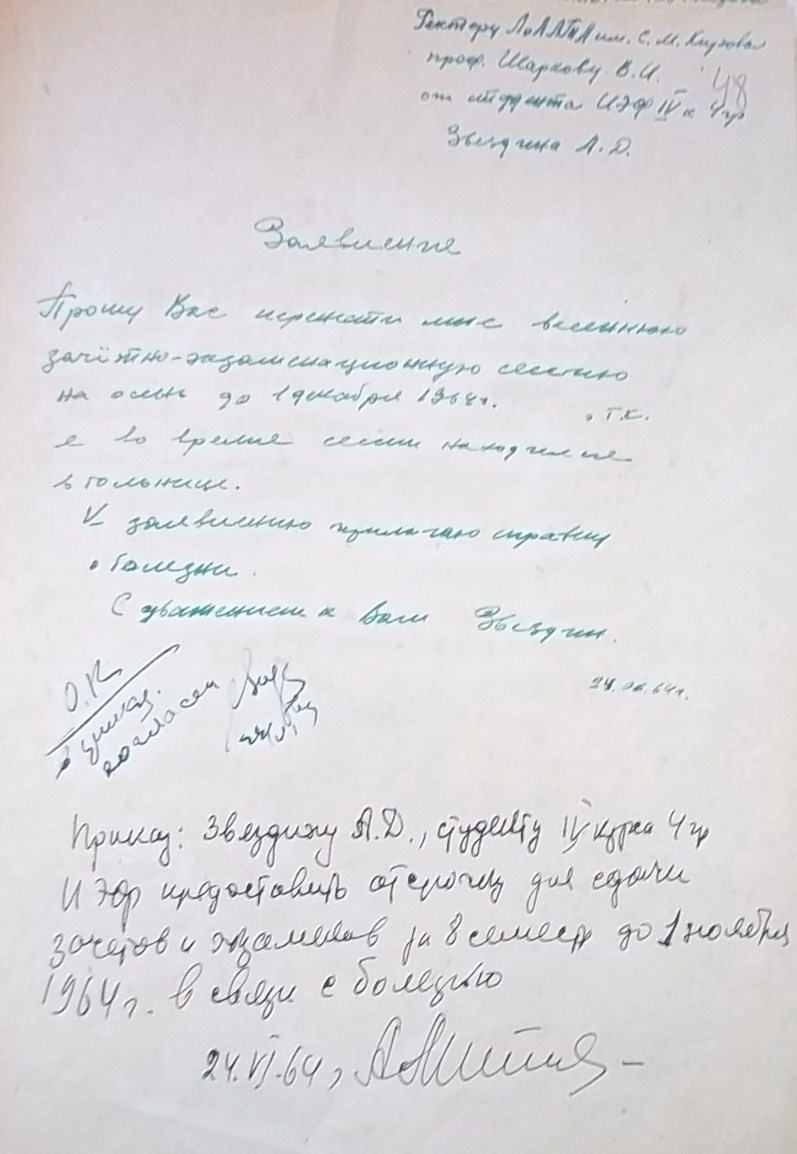 Ректору ЛоЛЛТА им. С. М. Кирова
проф. Шаркову В. И.
48
от студента ИЭФ IV к 4 гр
Звездина А. Д.
Заявление
Прошу Вас перенести мне весеннюю
зачётно-экзаменационную сессию
на осень до 1 декабря 1964г.
, т.к.
я во время сессии находился
в больнице.
К заявлению прилагаю справку
о болезни.
С уважением к Вам Звездин.
24.06.64г.
О.К
в приказ.
согласен
Приказ: Звездину А.Д., студенту IV курса 4 гр
ИЭФ предоставить отсрочку для сдачи
зачетов и экзаменов за 8 семестр до 1 ноября
1964г. в связи с болезнью
24.VI.64г